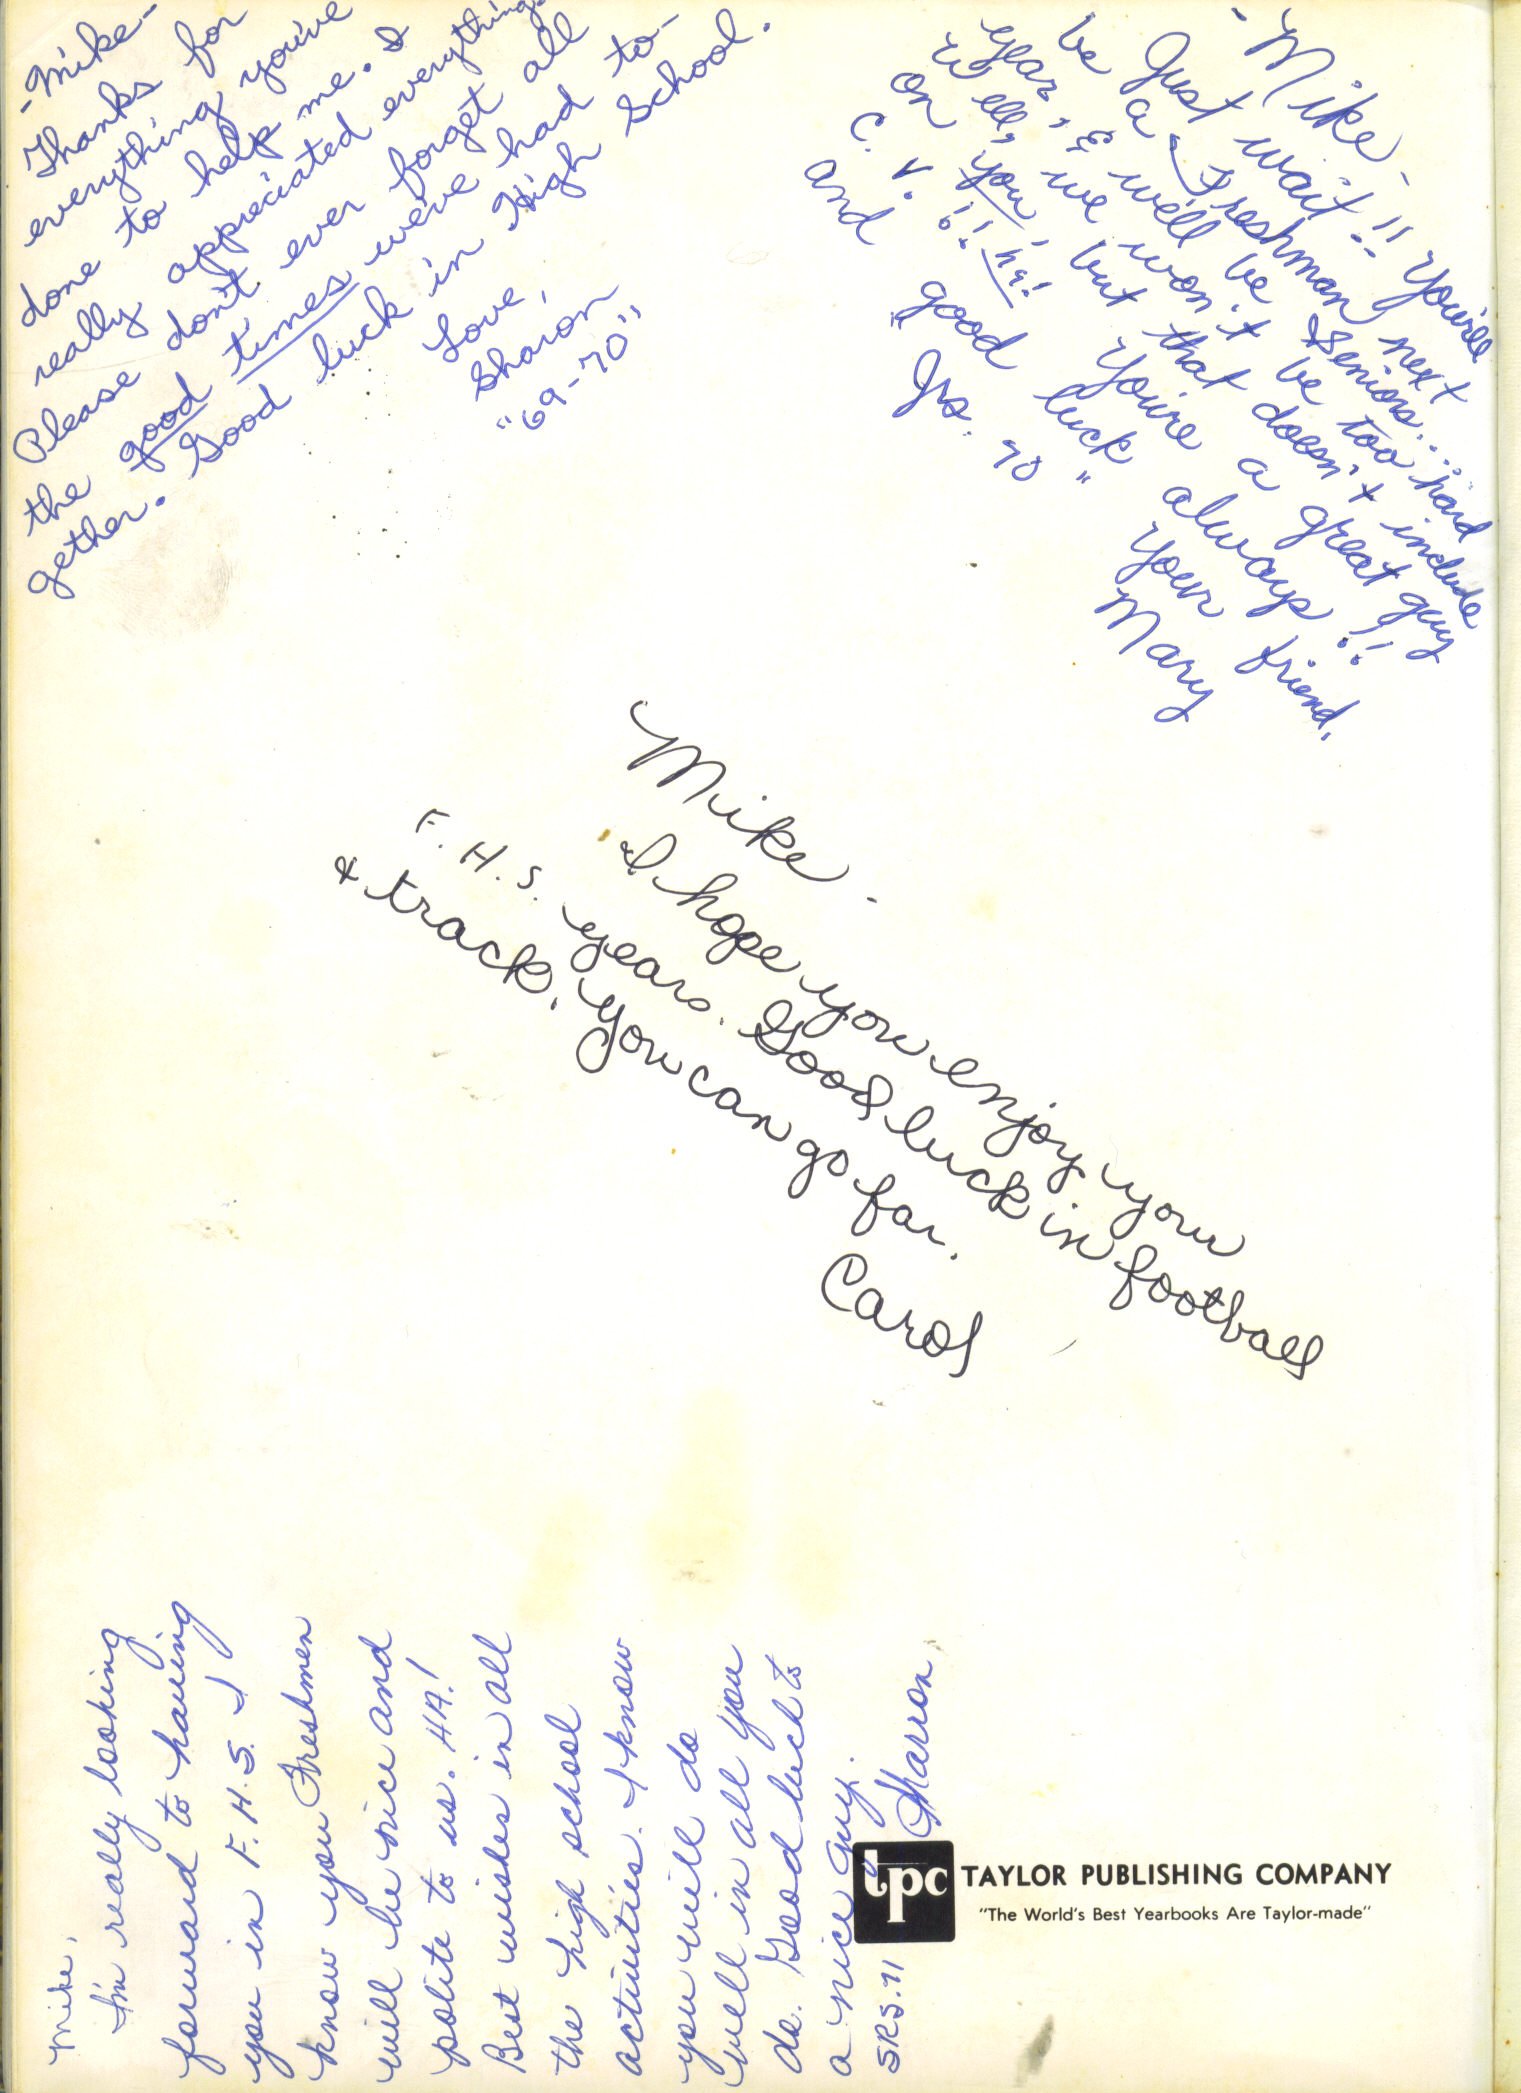 -Mike-
Thanks for
everything you've
done to help me. I
really appreciated everything.
Please don't ever forget all
the good times we've had to-
gether. Good luck in High School.
Love,
Sharon
"69-70"
-Mike-
Just wait!! You'll
be a Freshman next
year, & we'll be Seniors....
Well, we won't be too hard
on you, but that doesn't include
C.V.!! ha! You're a great guy
and good luck always!!
Your friend,
Mary
"Jrs. 70"
Mike -
I hope you enjoy your
F.H.S. years. Good luck in football
& track. You can go far.
Carol
Mike,
I'm really looking
forward to having
you in F.H.S. I
know you Freshmen
will be nice and
polite to us. HA!
Best wishes in all
the high school
activities. I know
you will do
well in all you
do. Good luck to
a nice guy.
Sharron
SRS. 71
tpc
TAYLOR PUBLISHING COMPANY
"The World's Best Yearbooks Are Taylor-made"